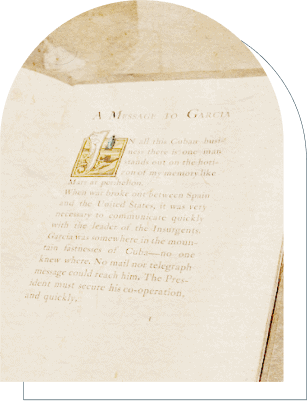 A Message to Garcia
IN all this Cuban busi-
ness there is one man
stands out on the hori-
zon of my memory like
Mars at perihelion.
When war broke out between Spain
and the United States, it was very
necessary to communicate quickly
with the leader of the Insurgents.
Garcia was somewhere in the moun-
tain fastnesses of Cuba—no one
knew where. No mail nor telegraph
message could reach him. The Pres-
ident must secure his co-operation,
and quickly.